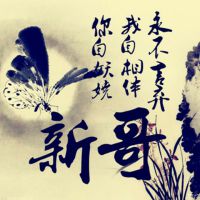 永不言弃
我自相伴
你自妖娆
新哥